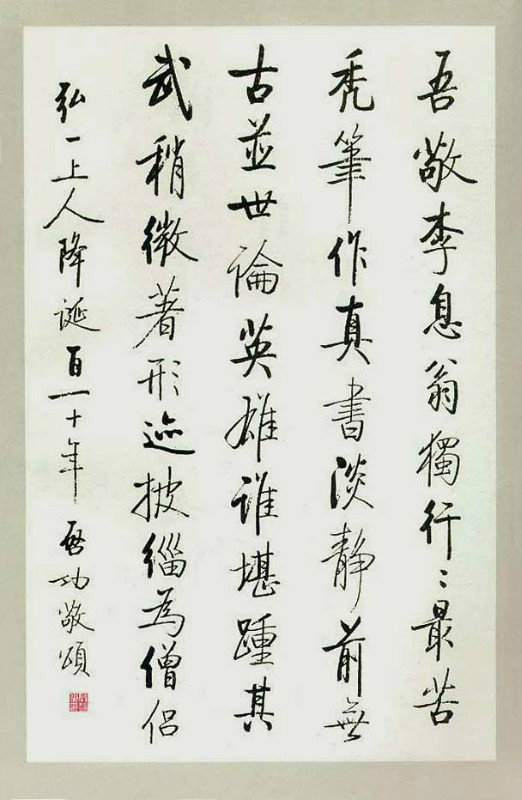 吾敬李息翁獨行〻最苦
秃筆作真書淡静前無
古並世論英雄誰堪踵其
武稍微著形迹披緇為僧侶
弘一上人降誕百一十年 啓功敬頌